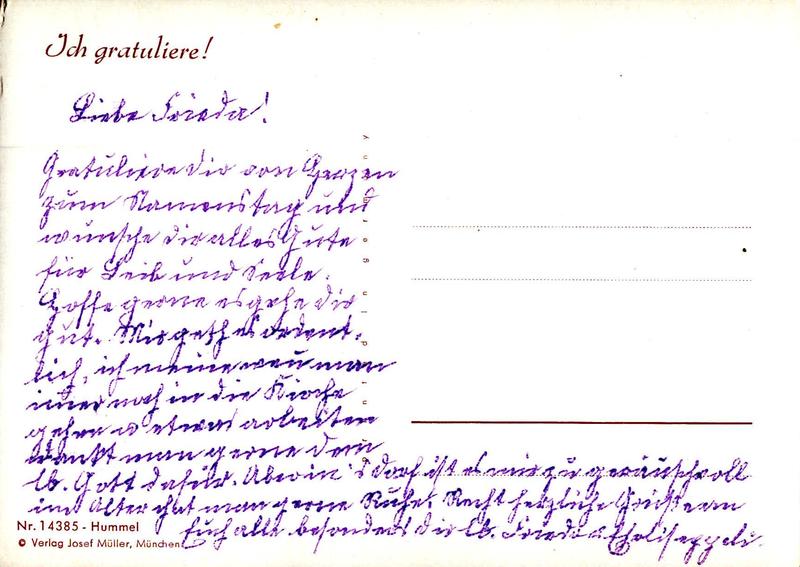 Ich gratuliere!
Liebe Frieda!
Gratuliere dir von Herzen
zum Namenstag und
wünsche dir alles Gute
für Leib und Seele.
Hoffe gerne es gehe dir
gut. Mir geth es ordent-
lich, ich meine wen man
imer noch in die Kirche
gehen u etwas arbeiten
dankt man gerne dem
lb. Gott dafür. Aber in's Dorf ist es mir zu geräuschvoll
im Alter hat man gerne Ruhe. Recht herzliche Grüsse an
Nr. 14385 - Hummel
Euch alle besonders dir lb. Frieda
© Verlag Josef Müller, München